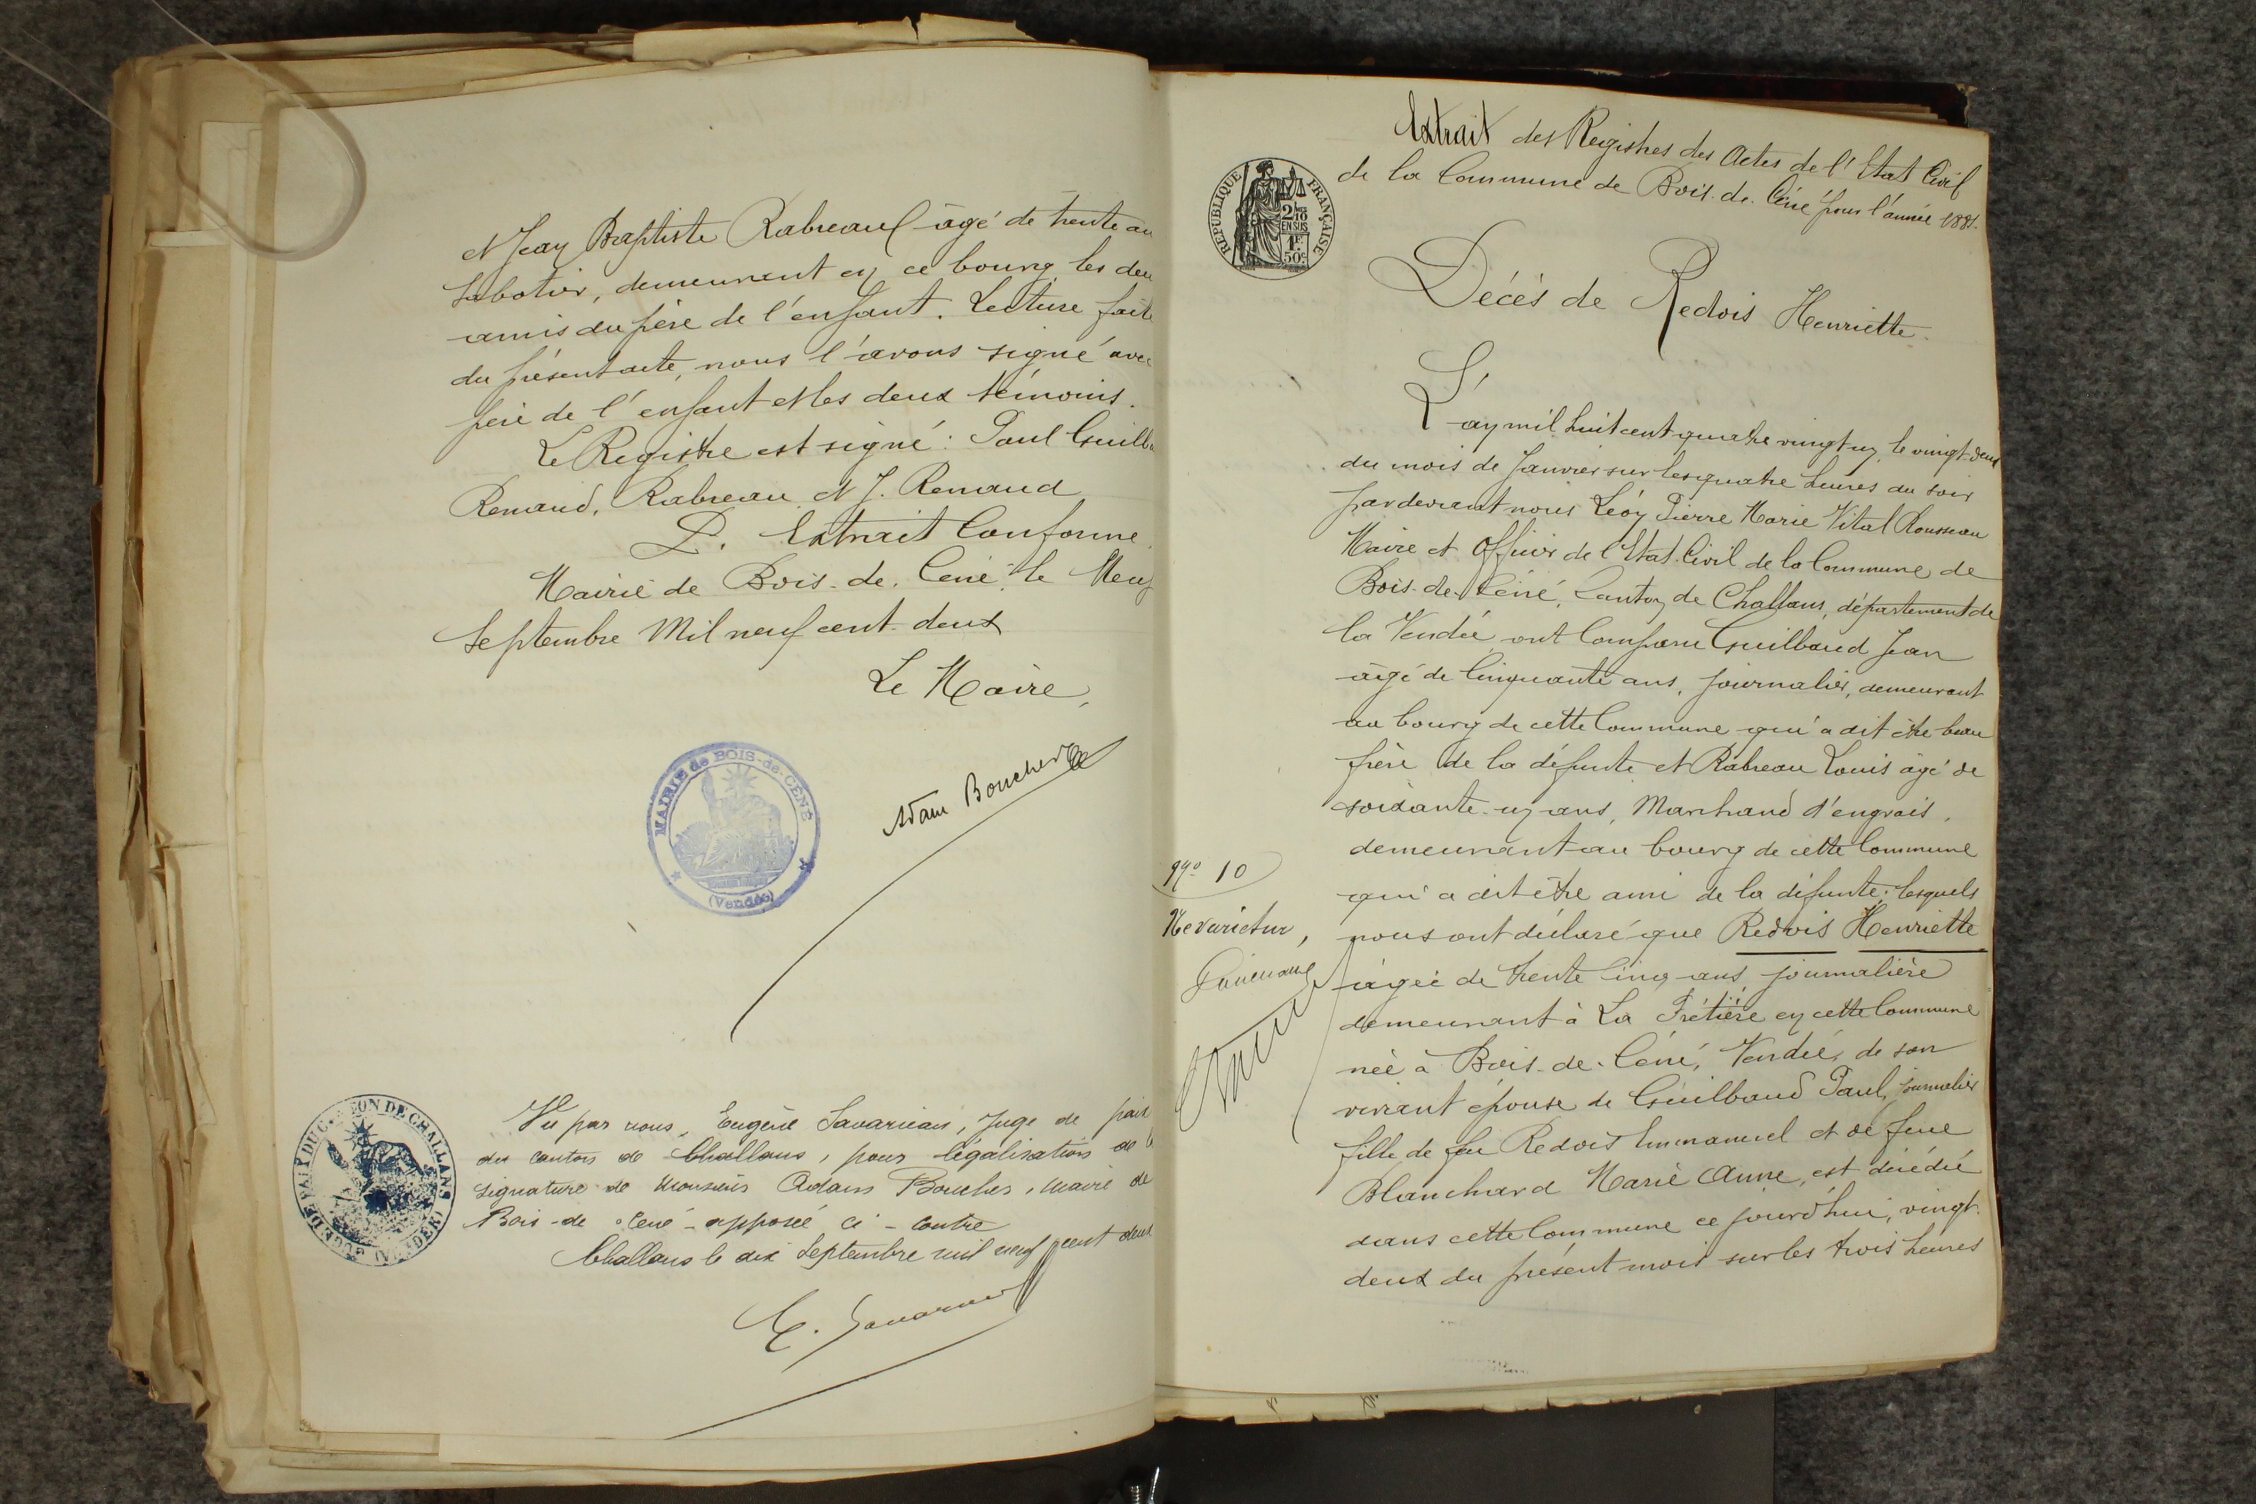 et Jean Baptiste Rabreau âgé de trente an
sabotier, demeurant en ce bourg les deu
amis du père de l'enfant. Lecture faite
du présent acte, nous l'avons signé avec
père de l'enfant et les deux témoins.
Le Registre est signé : Paul Guillb
Renaud, Rabreau et J. Renaud
P. Extrait Conforme.
Mairie de Bois-de-Céné le Neuf
Septembre Mil neuf cent deux
Le Maire,
MAIRIE de BOIS-de-CÉNÉ
(Vendée)
Adam Boucher
Vu par nous, Eugène Savarieau, Juge de paix
du canton de Challans, pour légalisation de l
signature de Monsieur Adam Boucher, maire de
Bois-de-Céné apposée ci-contre
Challans le dix Septembre mil neuf cent deux
JUGE DE PAIX DU CANTON DE CHALLANS
E. Savarieau
Extrait des Registres des Actes de l'Etat Civil
de la Commune de Bois-de-Céné pour l'année 1881.
RÉPUBLIQUE FRANÇAISE
2/10
EN SUS
1F
50c
Décès de Redois Henriette.
L'an mil huit cent quatre vingt-un, le vingt-deux
du mois de Janvier sur les quatre heures du soir
pardevant nous Léon Pierre Marie Vital Rousseau
Maire et Officier de l'Etat-Civil de la Commune de
Bois-de-Céné, Canton de Challans, département de
la Vendée ont Comparu Guilbaud Jean
âgé de Cinquante ans, journalier, demeurant
au bourg de cette Commune qui a dit être beau
frère de la défunte et Rabreau Louis âgé de
soixante-un ans, Marchand d'engrais,
demeurant au bourg de cette Commune
qui a dit être ami de la défunte; lesquels
nous ont déclaré que Redois Henriette
âgée de trente cinq ans journalière
demeurant à La Frétière en cette Commune
née à Bois-de-Céné, Vendée, de son
vivant épouse de Guilbaud Paul, journalier
fille de feu Redois Emmanuel et de feue
Blanchard Marie Anne, est décédée
dans cette Commune ce jourd'hui, vingt-
deux du présent mois sur les trois heures
No 10
Ne varietur,